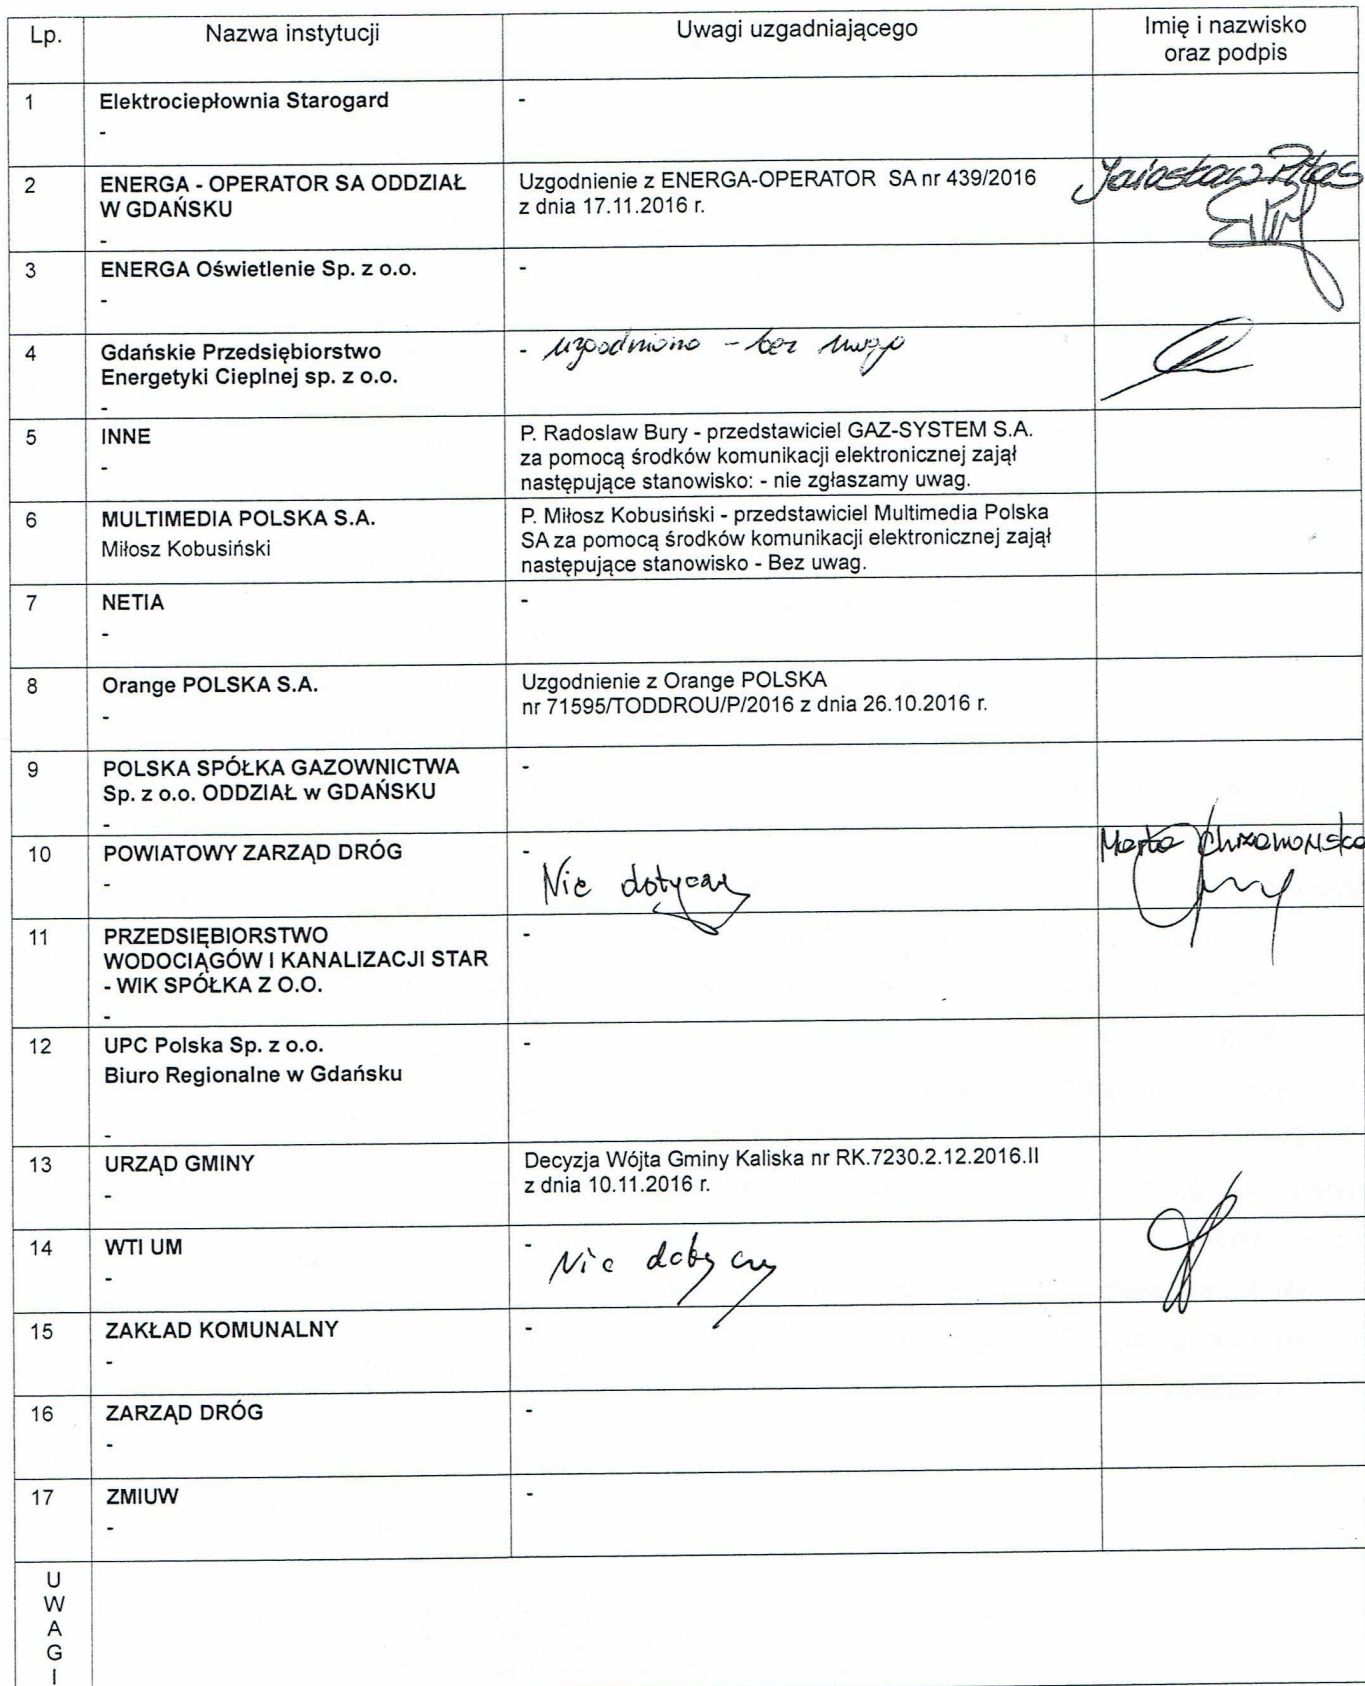 Lp.
Nazwa instytucji
Uwagi uzgadniającego
Imię i nazwisko
oraz podpis
1
Elektrociepłownia Starogard
-
-
2
ENERGA - OPERATOR SA ODDZIAŁ
W GDAŃSKU
-
Uzgodnienie z ENERGA-OPERATOR SA nr 439/2016
z dnia 17.11.2016 r.
3
ENERGA Oświetlenie Sp. z o.o.
-
-
4
Gdańskie Przedsiębiorstwo
Energetyki Cieplnej sp. z o.o.
-
- uzgodniono - bez uwag
5
INNE
-
P. Radoslaw Bury - przedstawiciel GAZ-SYSTEM S.A.
za pomocą środków komunikacji elektronicznej zajął
następujące stanowisko: - nie zgłaszamy uwag.
6
MULTIMEDIA POLSKA S.A.
Miłosz Kobusiński
P. Miłosz Kobusiński - przedstawiciel Multimedia Polska
SA za pomocą środków komunikacji elektronicznej zajął
następujące stanowisko - Bez uwag.
7
NETIA
-
-
8
Orange POLSKA S.A.
-
Uzgodnienie z Orange POLSKA
nr 71595/TODDROU/P/2016 z dnia 26.10.2016 r.
9
POLSKA SPÓŁKA GAZOWNICTWA
Sp. z o.o. ODDZIAŁ w GDAŃSKU
-
-
10
POWIATOWY ZARZĄD DRÓG
-
-
Nie dotyczy
Marta Chrzanowska
11
PRZEDSIĘBIORSTWO
WODOCIĄGÓW I KANALIZACJI STAR
- WIK SPÓŁKA Z O.O.
-
-
12
UPC Polska Sp. z o.o.
Biuro Regionalne w Gdańsku
-
-
13
URZĄD GMINY
-
Decyzja Wójta Gminy Kaliska nr RK.7230.2.12.2016.II
z dnia 10.11.2016 r.
14
WTI UM
-
-
Nie dotyczy
15
ZAKŁAD KOMUNALNY
-
-
16
ZARZĄD DRÓG
-
-
17
ZMIUW
-
-
U
W
A
G
I